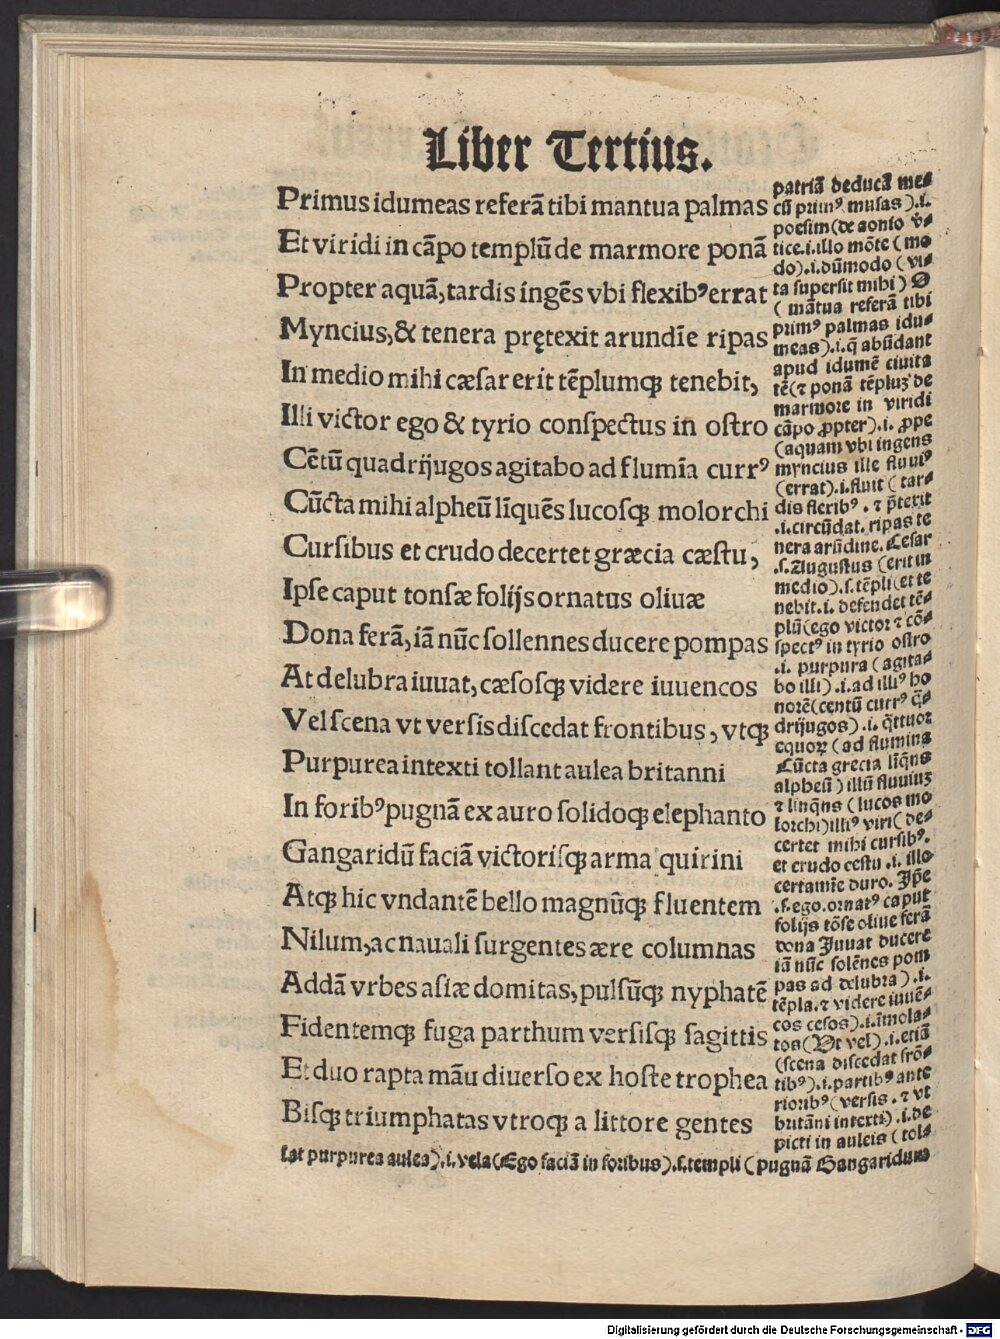 Liber Tertius.
Primus idumeas referā tibi mantua palmas
Et viridi in cāpo templū de marmore ponā
Propter aquā, tardis ingēs vbi flexibꝰ errat
Myncius, & tenera prętexit arundīe ripas
In medio mihi cæsar erit tēplumꝙ tenebit,
Illi victor ego & tyrio conſpectus in oſtro
Cētū quadrijugos agitabo ad flumīa currꝰ
Cūcta mihi alpheū līquēs lucoſꝙ molorchi
Curſibus et crudo decertet græcia cæſtu,
Ipſe caput tonſæ folijs ornatus oliuæ
Dona ferā, iā nūc ſollennes ducere pompas
At delubra iuuat, cæſoſꝙ videre iuuencos
Vel ſcena vt verſis diſcedat frontibus, vtꝙ
Purpurea intexti tollant aulea britanni
In foribꝰ pugnā ex auro ſolidoꝙ elephanto
Gangaridū faciā victoriſꝙ arma quirini
Atꝙ hic vndantē bello magnūꝙ fluentem
Nilum, ac nauali ſurgentes ære columnas
Addā vrbes aſiæ domitas, pulſūꝙ nyphatē
Fidentemꝙ fuga parthum verſiſꝙ ſagittis
Et duo rapta māu diuerſo ex hoſte trophea
Biſꝙ triumphatas vtroꝙ a littore gentes
patriā deducā me⸗
cū primꝰ muſas).i.
poeſim (de aonio v̄⸗
tice.i.illo mōte (mo
do).i.dūmodo (vi⸗
ta ſuperſit mihi) O
(mātua referā tibi
primꝰ palmas idu⸗
meas).i.q̄ abūdant
apud idumē ciuita
tē(⁊ ponā tēpluʒ de
marmore in viridi
cāpo ꝓpter).i. ꝓpe
(aquam vbi ingens
myncius ille fluuiꝰ
(errat).i.fluit (tar⸗
dis flexibꝰ. ⁊ p̄texit
.i.circūdat. ripas te
nera arūdine. Ceſar
.ſ. Auguſtus (erit in
medio).ſ.tēpli(et te
nebit.i. defendet tē⸗
plū(ego victor ⁊ cō⸗
ſpectꝰ in tyrio oſtro
.i. purpura (agita⸗
bo illi).i.ad illiꝰ ho
norē(centū currꝰ q̄⸗
drijugos).i. q̄ttuor
equoꝝ (ad flumina
Cūcta grecia līq̄ns
alpheū) illū fluuiuʒ
⁊ linq̄ns (lucos mo
lorchi)illiꝰ viri(de⸗
certet mihi curſibꝰ.
et crudo ceſtu .i. illo
certamīe duro. Ip̄e
.ſ.ego.ornatꝰ caput
folijs tōſe oliue ferā
dona Juuat ducere
iā nūc ſolēnes pom
pas ad delubra).i.
tēpla.⁊ videre iuuē⸗
cos ceſos).i.īmola⸗
tos(Ut vel).i.etiā
(ſcena diſcedat frō⸗
tibꝰ).i.partibꝰ ante
rioribꝰ(verſis.⁊ vt
britāni intexti).i.de
picti in auleis (tol⸗
lāt purpurea aulea).i.vela(Ego faciā in foribus).ſ.templi (pugnā Gangaridum
Digitalisierung gefördert durch die Deutsche Forschungsgemeinschaft - DFG